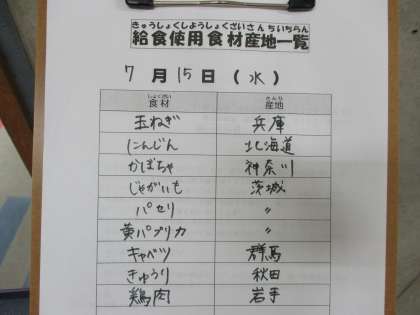 きゅうしょくしようしょくざいさんちいちらん
給食使用食材産地一覧
7月15日(水)
しょくざい さんち
食材 産地
玉ねぎ 兵庫
にんじん 北海道
かぼちゃ 神奈川
じゃがいも 茨城
パセリ 〃
黄パプリカ 〃
キャベツ 群馬
きゅうり 秋田
鶏肉 岩手